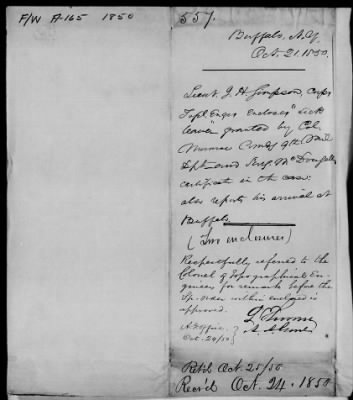 F/W A-165 1850
557.
Buffalo, N.Y.
Oct. 21. 1850.
Lieut J. H. Simpson, Corps
Topl Engrs encloses "sick
leave" granted by Col.
Munroe Comdg 9th Mil
Dpt and Surg. McDougall's
certificate in the case
also reports his arrival at
Buffalo.
(Two enclosures)
Respectfully referred to the
Colonel of Topographical En-
gineers for remarks before the
Sp. order within enclosed is
approved.
A. G. Office
Oct. 24/50
Retd. Oct. 25/50
Rec'd Oct. 24. 1850